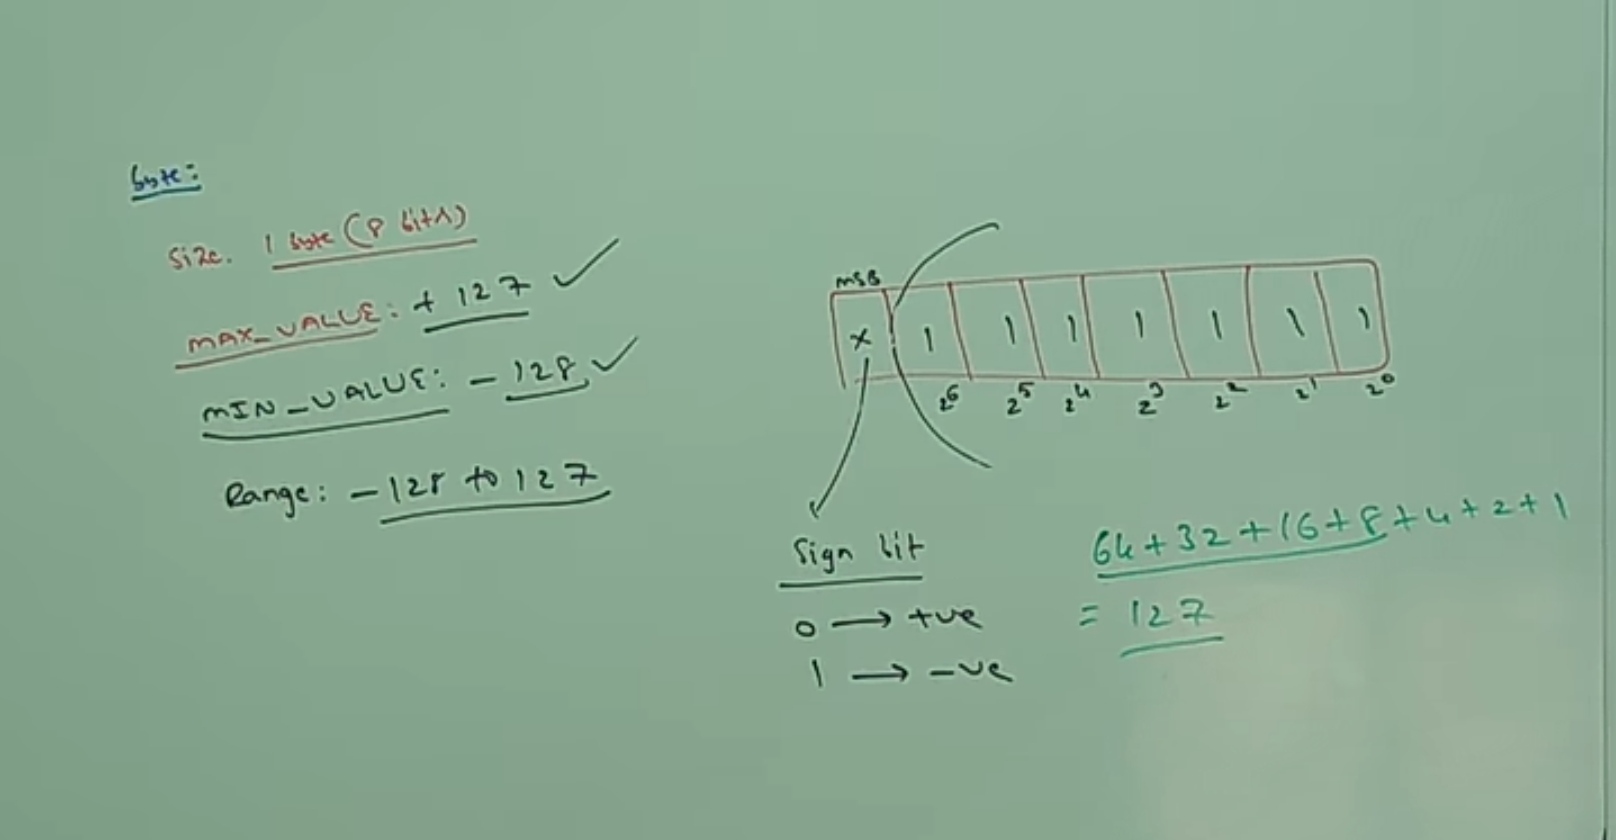 byte:
Size. 1 byte (8 bits)
MAX_VALUE: + 127
MIN_VALUE: - 128
Range: -128 to 127
MSB
x 1 1 1 1 1 1 1
2⁶ 2⁵ 2⁴ 2³ 2² 2¹ 2⁰
Sign bit
0 → +ve
1 → -ve
64+32+16+8+4+2+1
= 127